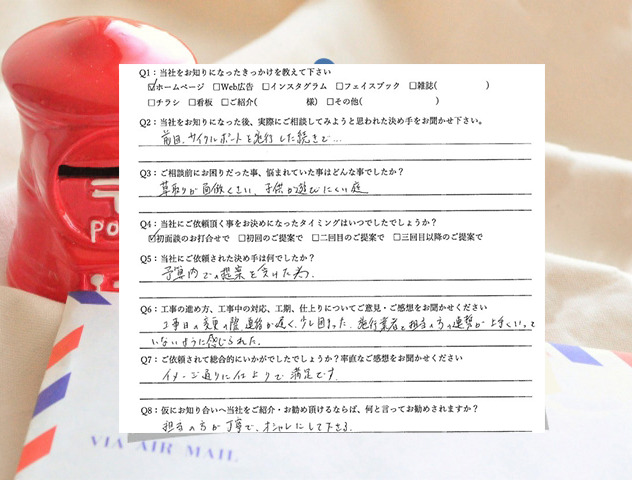 Q1：当社をお知りになったきっかけを教えて下さい
☑ホームページ □Web広告 □インスタグラム □フェイスブック □雑誌( )
□チラシ □看板 □ご紹介( 様) □その他( )
Q2：当社をお知りになった後、実際にご相談してみようと思われた決め手をお聞かせ下さい。
前回、サイクルポートを施行した続きで...
Q3：ご相談前にお困りだった事、悩まれていた事はどんな事でしたか？
草取りが面倒くさい、子供が遊びにくい庭
Q4：当社にご依頼頂く事をお決めになったタイミングはいつでしたでしょうか？
☑初面談のお打合せで □初回のご提案で □二回目のご提案で □三回目以降のご提案で
Q5：当社にご依頼された決め手は何でしたか？
予算内での提案を受けた為。
Q6：工事の進め方、工事中の対応、工期、仕上りについてご意見・ご感想をお聞かせください
工事日の変更の際、連絡が遅く、少し困った。施行業者と担当の方の連携が上手くいって
いないように感じられた。
Q7：ご依頼されて総合的にいかがでしたでしょうか？率直なご感想をお聞かせください
イメージ通りに仕上りで満足です。
Q8：仮にお知り合いへ当社をご紹介・お勧め頂けるならば、何と言ってお勧めされますか？
担当の方が丁寧で、オシャレにして下さる。
PO
VIA AIR MAIL